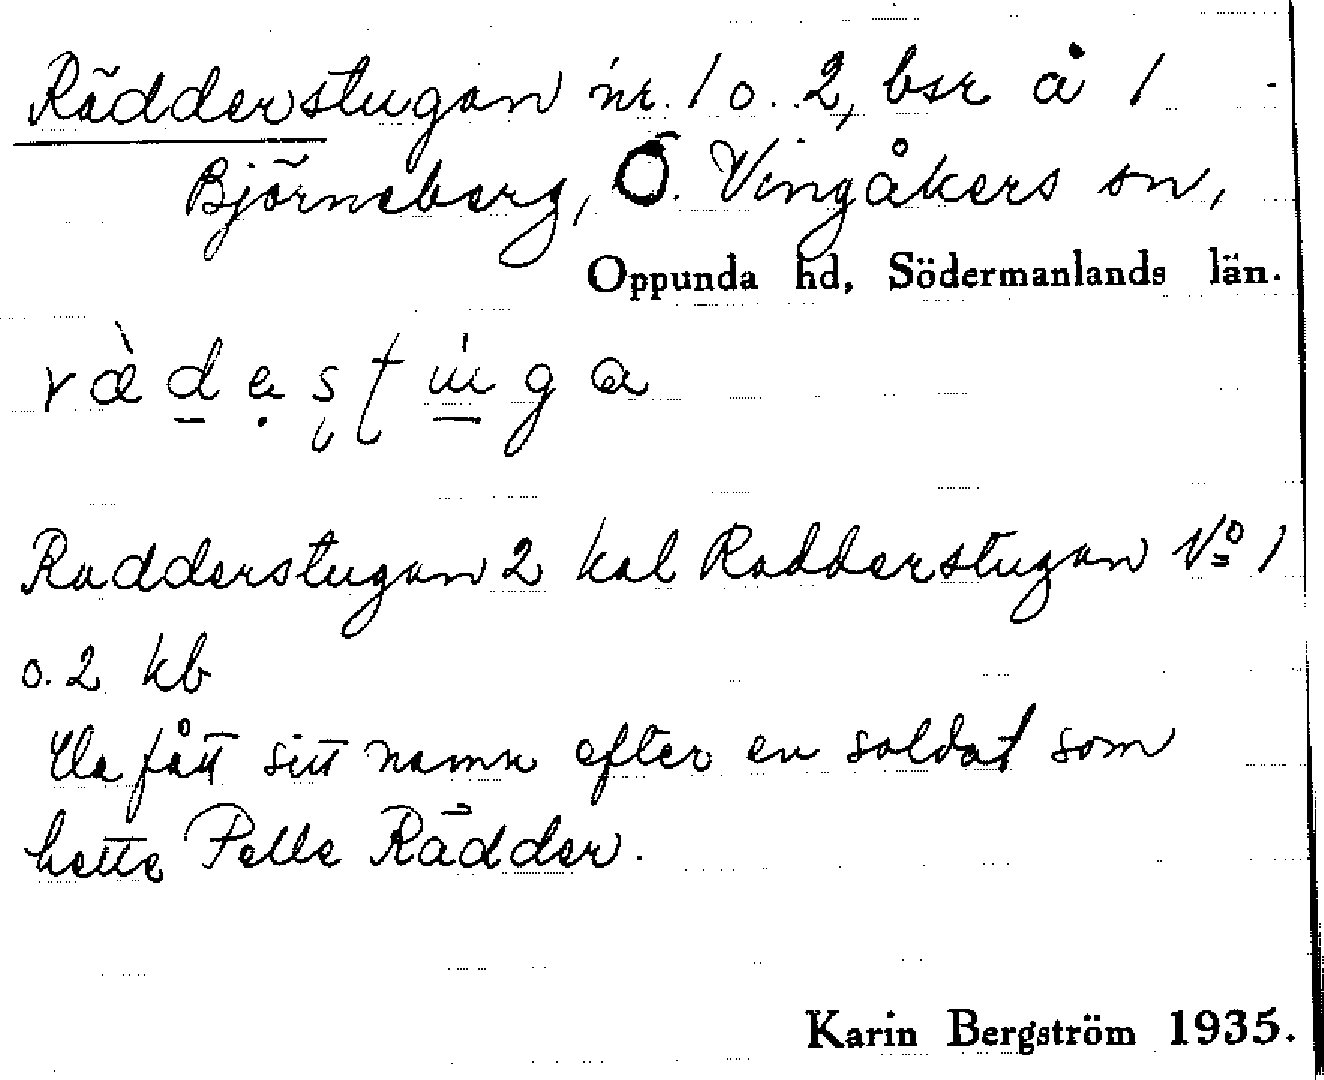 Rädderstugan nr. 1 o. 2, bsr å 1
Björneberg, Ö. Vingåkers sn,
Oppunda hd, Södermanlands län.
Radderstugan 2 kal Radderstugan No 1
o. 2 kb
Ha fått sitt namn efter en soldat som
hette Pelle Rädder.
Karin Bergström 1935.